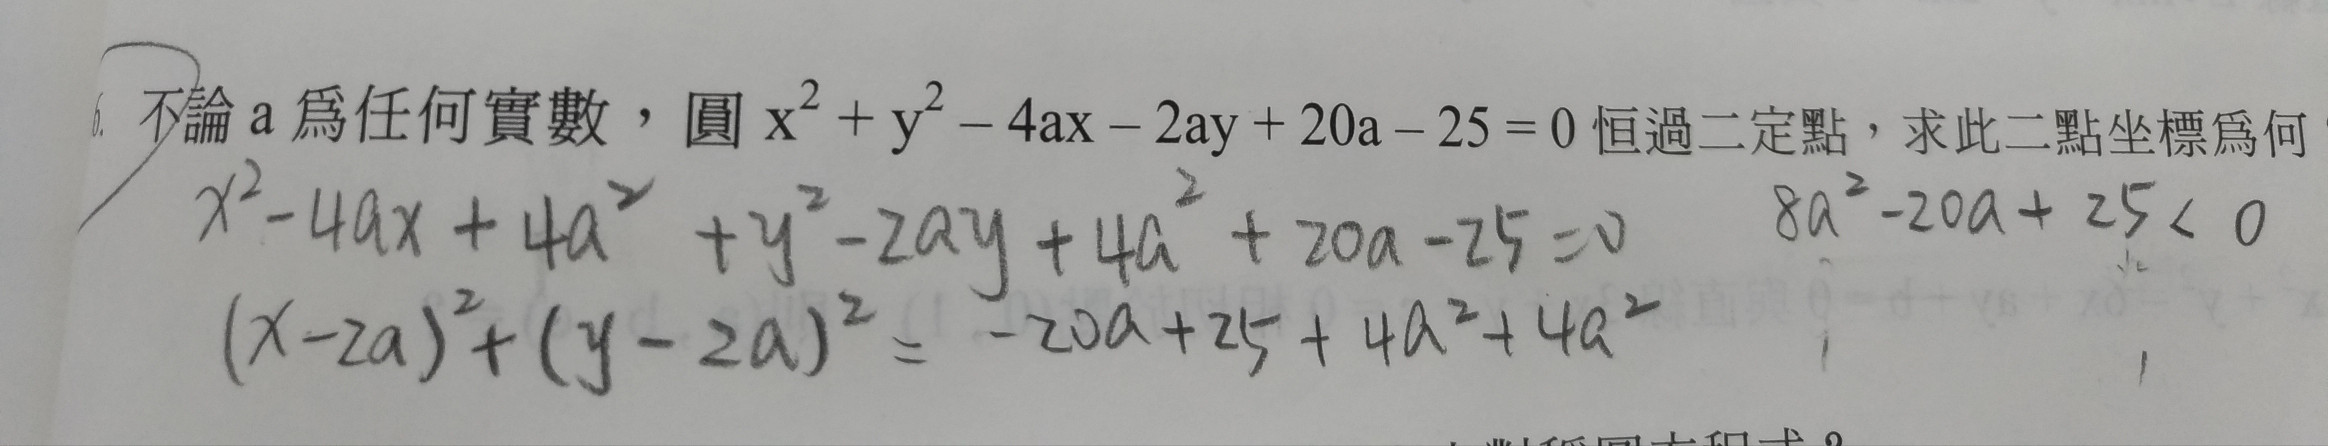 6. 不論 a 爲任何實數，圓 x² + y² – 4ax – 2ay + 20a – 25 = 0 恒過二定點，求此二點坐標爲何
x² - 4ax + 4a² + y² - 2ay + 4a² + 20a - 25 = 0
8a² - 20a + 25 < 0
(x - 2a)² + (y - 2a)² = -20a + 25 + 4a² + 4a²